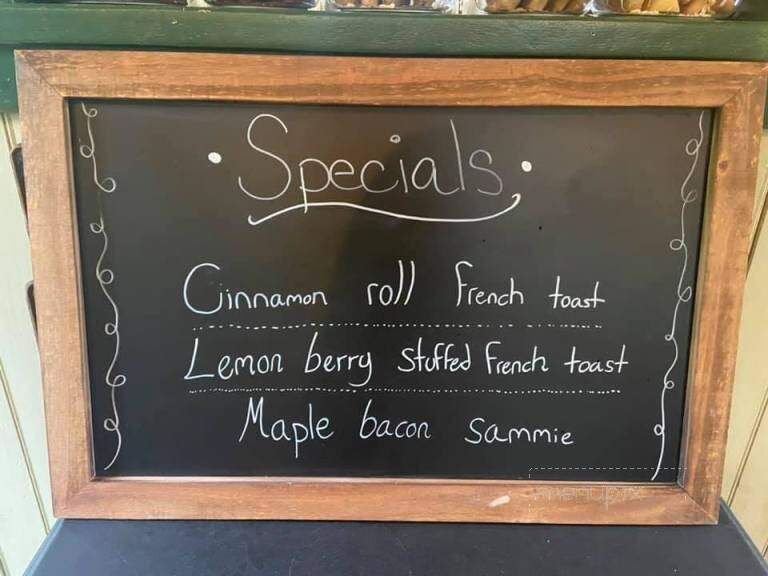 • Specials •
Cinnamon roll French toast
Lemon berry stuffed French toast
Maple bacon sammie
menupix